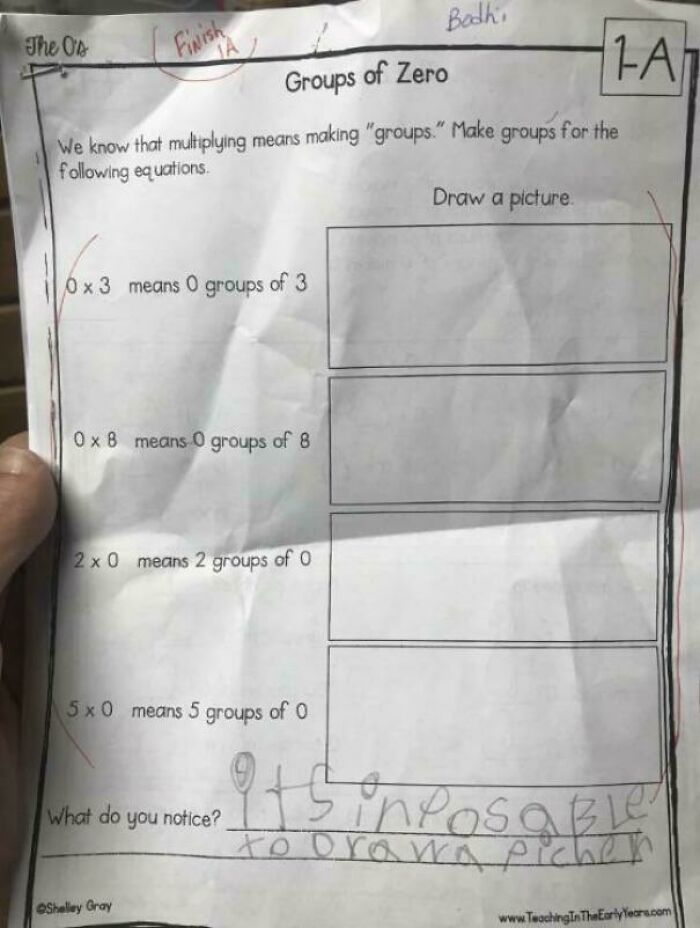 The 0's
Finish
1A
Bodhi
1-A
Groups of Zero
We know that multiplying means making "groups." Make groups for the
following equations.
Draw a picture.
0 x 3 means 0 groups of 3
0 x 8 means 0 groups of 8
2 x 0 means 2 groups of 0
5 x 0 means 5 groups of 0
What do you notice? itS inPosaBle
to Drawa picher
©Shelley Gray
www.TeachingInTheEarlyYears.com